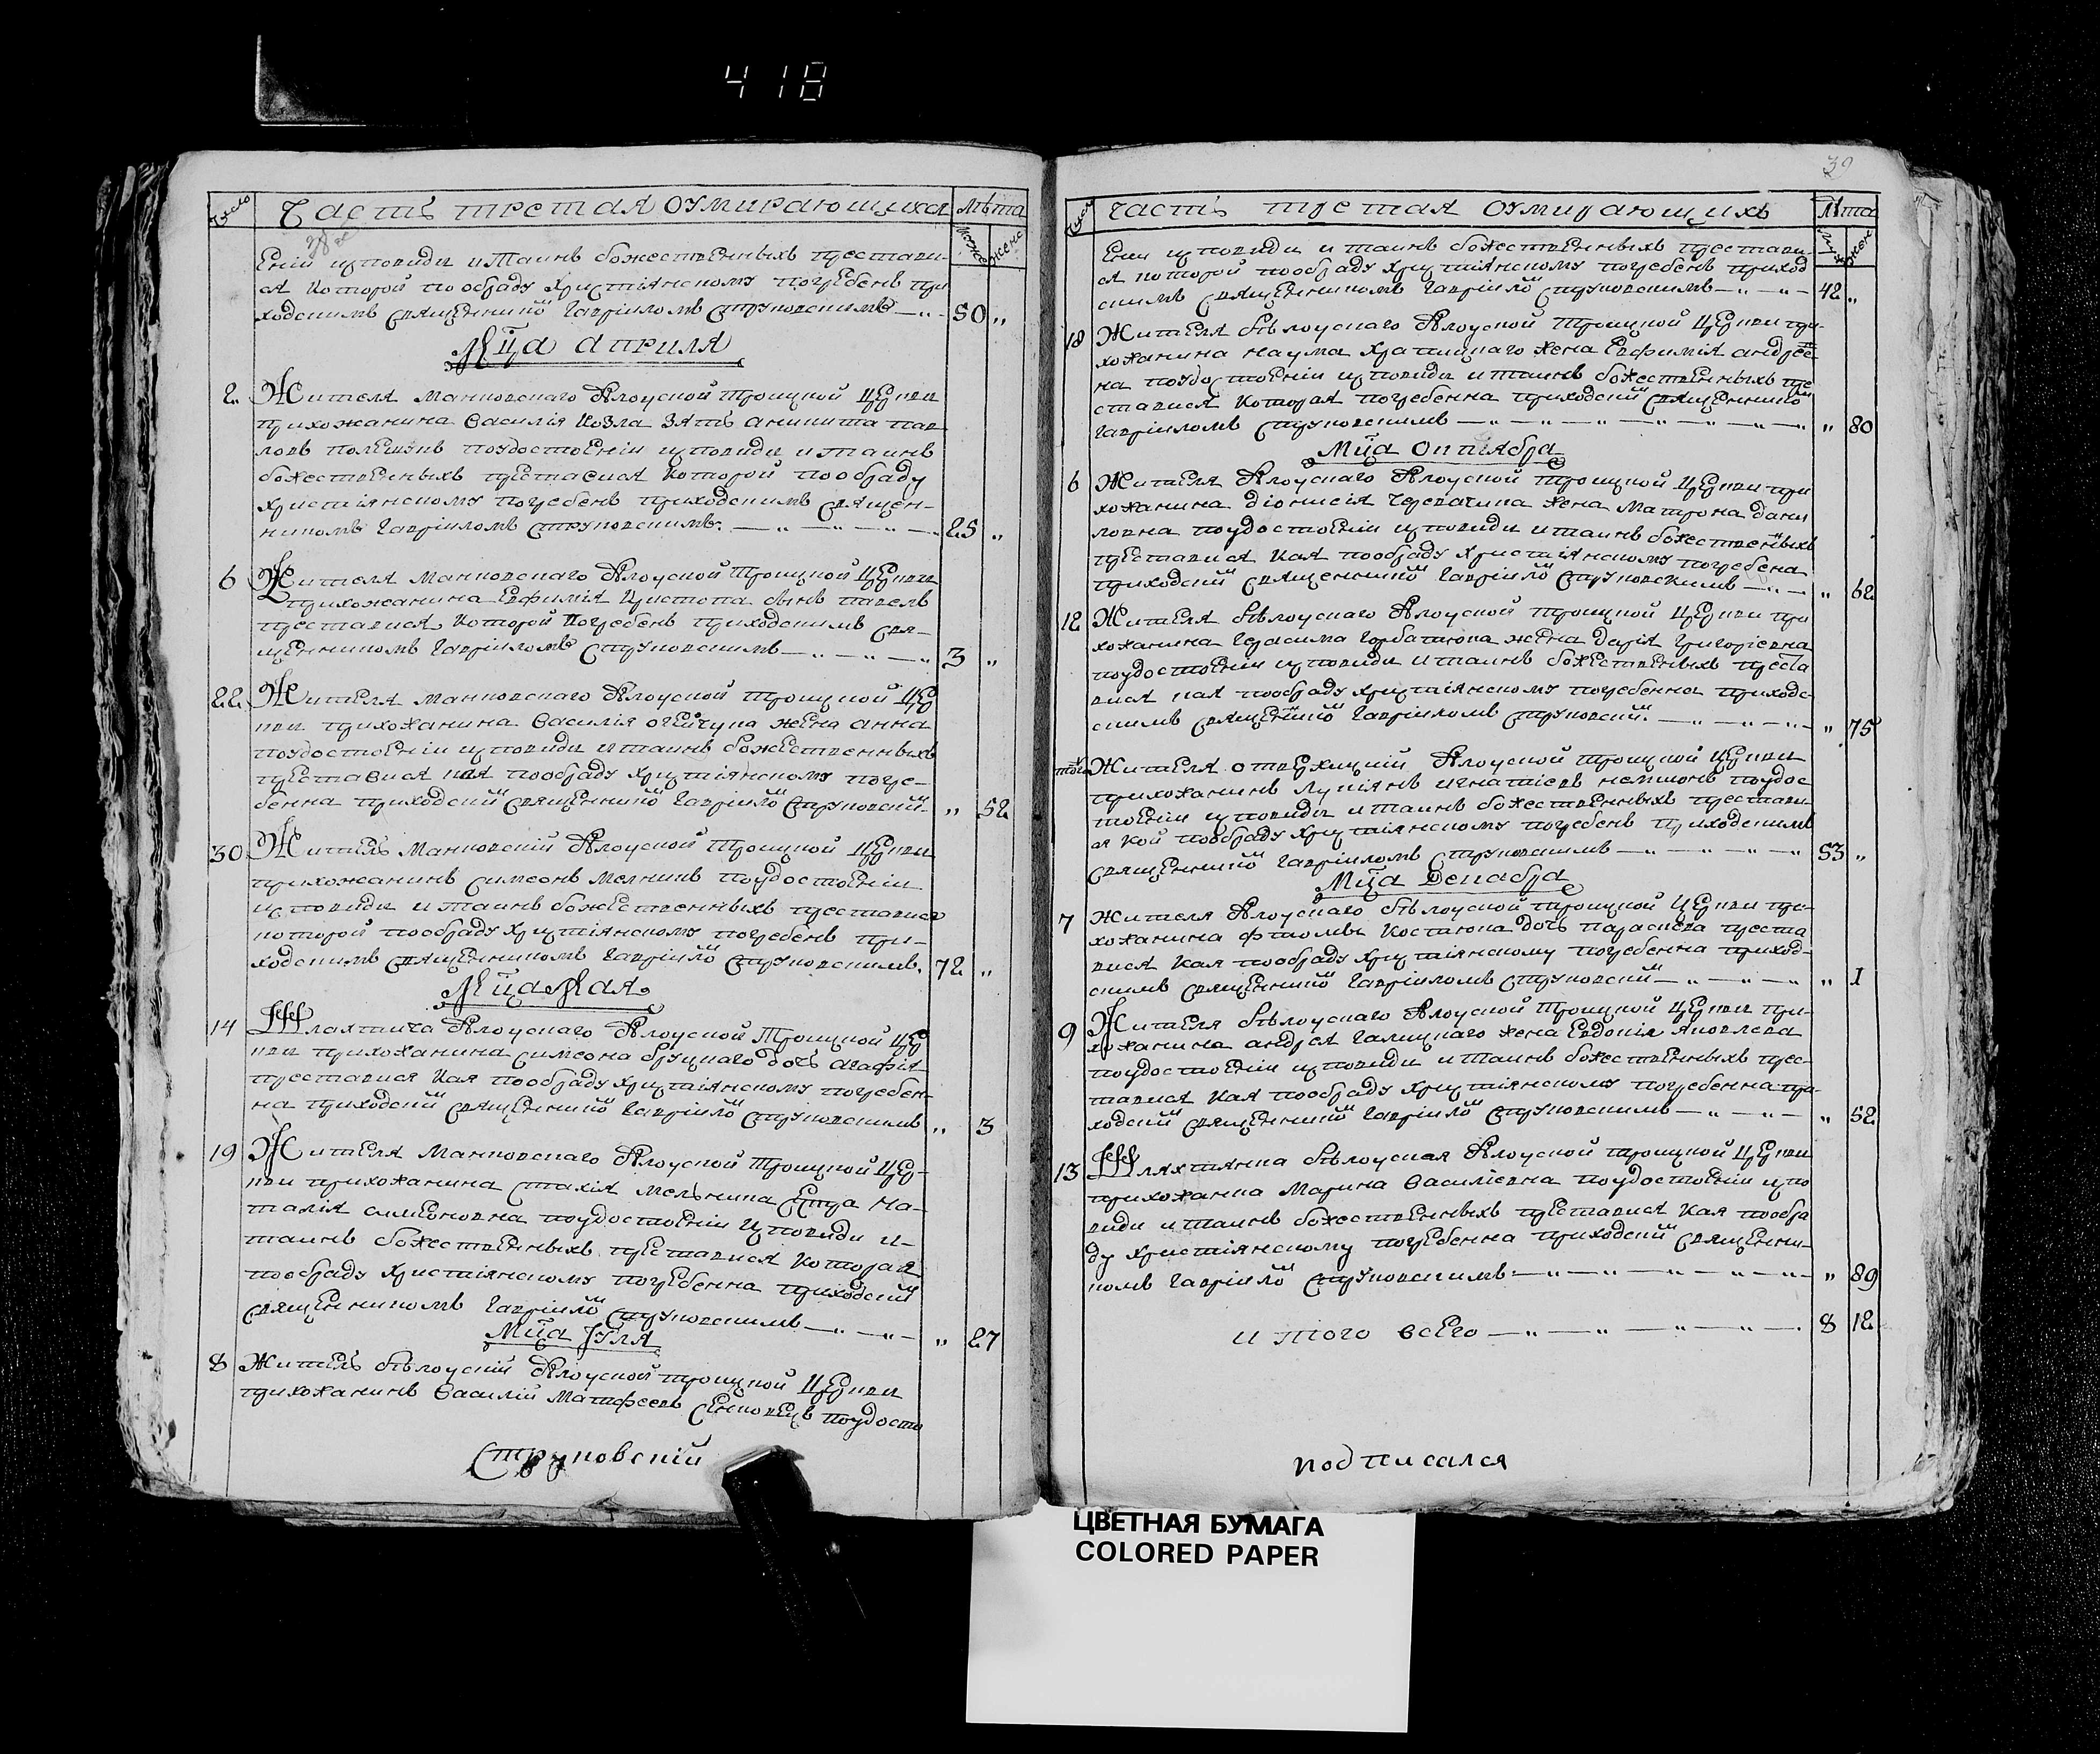 418
Число
Часть третая оумирающихся
лѣта
мужс
женс
38
еніи исповиди и таинъ божественныхъ престави-
ся которой пообряду христіянскому погребенъ при
ходскимъ священникомъ Гавріиломъ Струковскимъ 50 „
Мца Априля
2 Жителя Манковскаго Ялоуской Троицкой церкви
прихожанина Василія Козла зять Аникита пав
ловъ поудостоеніи исповиди и таинъ
божественыхъ преставися которой пообряду
христіянскому погребенъ приходскимъ священ-
никомъ Гавріиломъ Струковскимъ 25 „
6 Жителя Манковскаго Ялоуской Троицкой церкви
прихожанина Евфимія сынъ павелъ
преставися которой погребенъ приходскимъ свя-
щенникомъ Гавріиломъ Струковскимъ 3 „
22 Жителя Манковскаго Ялоуской Троицкой цер
кви прихожанина Василія жена анна
поудостоеніи исповиди и таинъ божественныхъ
преставися кая пообряду христіянскому погре-
бенна приходским священником Гавріилом Струковским „ 52
30 Житель Манковскій Ялоуской Троицкой церкви
прихожанинъ Симеонъ Мелникъ поудостоеніи
исповиди и таинъ божественныхъ преставися
которой пообряду христіянскому погребенъ при-
ходскимъ священникомъ Гавріилом Струковскимъ 72 „
Мца Мая
14 Шляхтича Ялоускаго Ялоуской Троицкой цер
кви прихожанина Симеона Бруцкаго дочь агафія
преставися кая пообряду христіянскому погребен-
на приходским священником Гавріилом Струковскимъ „ 3
19 Жителя Манковскаго Ялоуской Троицкой цер-
кви прихожанина Стахія Мельника На-
талія симеоновна поудостоеніи исповиди и
таинъ божественныхъ преставися которая
пообряду христіянскому погребенна приходским
священникомъ Гавріилом Струковскимъ „ 27
Мца Іуля
8 Житель бѣлоускій Ялоуской Троицкой церкви
прихожанинъ Василій Матфеевъ поудосто
Струковскій
39
Число
часть третая оумирающихъ
Лѣта
муж
жен
ении исповиди и таинъ божественныхъ престави-
ся которой пообряду христіянскому погребенъ приход
скимъ священникомъ Гавріилом Струковскимъ 42 „
18 Жителя бѣлоускаго Ялоуской Троицкой церкви при-
хожанина наума жена Евфимія андрее
на поудостоеніи исповиди и таинъ божественныхъ пре
ставися которая погребенна приходским священником
Гавріиломъ Струковскимъ „ 80
Мца Октября
6 Жителя Ялоускаго Ялоуской Троицкой церкви при
хожанина діонисія жена Матрона дани
ловна поудостоеніи исповиди и таинъ божественыхъ
преставися кая пообряду христіянскому погребена
приходским священником Гавріилом Струковскимъ „ 62
12 Жителя бѣлоускаго Ялоуской Троицкой церкви при
хожанина Герасима Горбатюка жена Дарія Григоріевна
поудостоеніи исповиди и таинъ божественыхъ преста
вися кая пообряду христіянскому погребенна приход-
скимъ священником Гавріиломъ Струковским „ 75
тогож Жителя Ялоуской Троицкой церкви
прихожанинъ Лукіянъ игнатіевъ поудос
тоеніи исповиди и таинъ божественныхъ престави-
ся кой пообряду христіянскому погребенъ приходскимъ
священником Гавріиломъ Струковскимъ 53 „
Мца Декабря
7 Жителя Ялоускаго бѣлоуской Троицкой церкви при-
хожанина Костюка дочь параскева преста
вися кая пообряду христіянскому погребенна приход-
скимъ священником Гавріиломъ Струковским „ 1
9 Жителя бѣлоускаго Ялоуской Троицкой церкви при-
хожанина андрея Галицкаго жена Евдокія Яковлева
поудостоеніи исповиди и таинъ божественныхъ прес-
тавися кая пообряду христіянскому погребенна при-
ходским священником Гавріилом Струковскимъ „ 52
13 Шляхтянка бѣлоуская Ялоуской Троицкой церкви
прихожанка Марина Василіевна поудостоеніи испо
види и таинъ божественныхъ преставися кая пообря
ду христіянскому погребенна приходским священни-
комъ Гавріилом Струковскимъ „ 89
и того всего 8 12
подписался
ЦВЕТНАЯ БУМАГА
COLORED PAPER